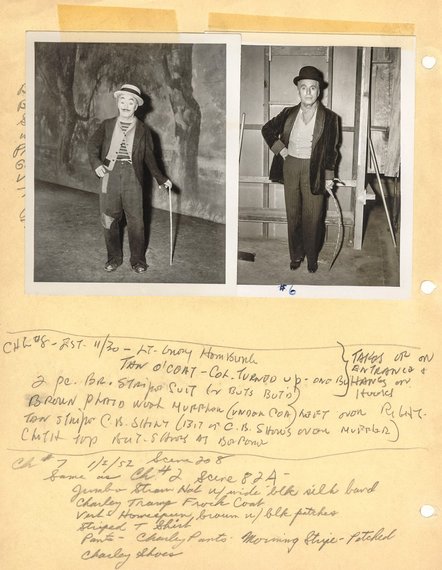 #6
CH #8 - EST. 11/30 - LT. Gray Homburg
TAN O'COAT - COL. TURNED UP - ONE BU
2 pc. BR. STRIPE SUIT (2 BUTS BUT'D)
BROWN PLAID WOOL MUFFLER (UNDER COA) LEFT OVER RIGHT.
TAN STRIPE C.B. SHIRT (BUT OF C.B. SHOWS OVER MUFFLER)
CLOTH TOP BUT. SHOES AS BEFORE
TAKES OFF ON
ENTRANCE &
HANGS ON
Ch #7 1/2/52 Scene 208
Same as Ch #2 Scene 824 -
Jumbo Straw Hat w/ wide blk silk band
Charley Tramp Frock Coat
Vest Homespun brown w/ blk patches
Striped T Shirt
Pants - Charley Pants - Morning Stripe - Patched
Charley Shoes